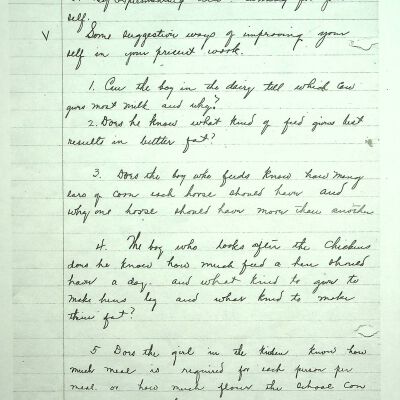 self.
V Some suggestion ways of improving your
self in your present work.
1. Can the boy in the dairy tell which cow
gives most milk and why?
2. Does he know what kind of feed gives best
results in butter fat?
3. Does the boy who feeds know how many
ears of corn each horse should have and
why one horse should have more than another
4. The boy who looks after the chickens
does he know how much feed a hen should
have a day. and what kind to give to
make hens lay and what kind to make
them fat?
5 Does the girl in the kichen know how
much meal is required for each person per
meal or how much flour the school con